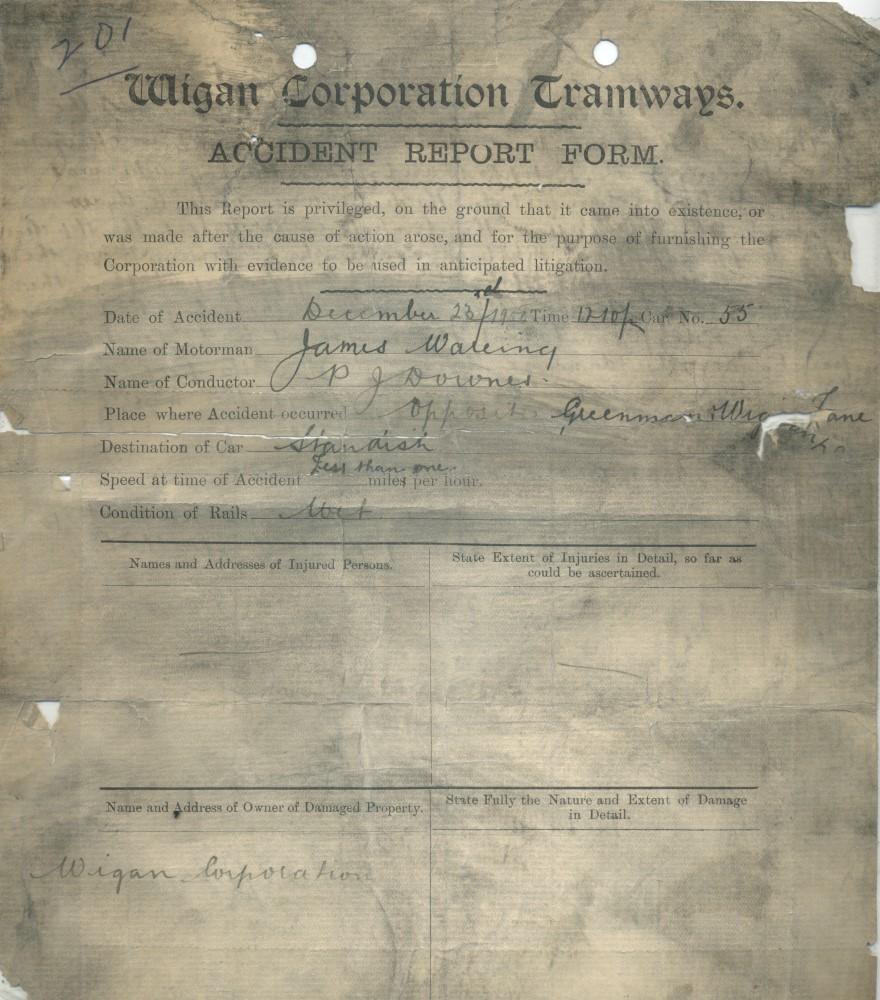 201
Wigan Corporation Tramways.
ACCIDENT REPORT FORM.
This Report is privileged, on the ground that it came into existence, or
was made after the cause of action arose, and for the purpose of furnishing the
Corporation with evidence to be used in anticipated litigation.
Date of Accident December 23rd Time 12-10 p Car No. 55
Name of Motorman James Wareing
Name of Conductor P J Downes.
Place where Accident occurred Opposite Greenman Wigan Lane
Destination of Car Standish
Less than one
Speed at time of Accident miles per hour.
Condition of Rails Wet
Names and Addresses of Injured Persons.
State Extent of Injuries in Detail, so far as
could be ascertained.
Name and Address of Owner of Damaged Property.
State Fully the Nature and Extent of Damage
in Detail.
Wigan Corporation